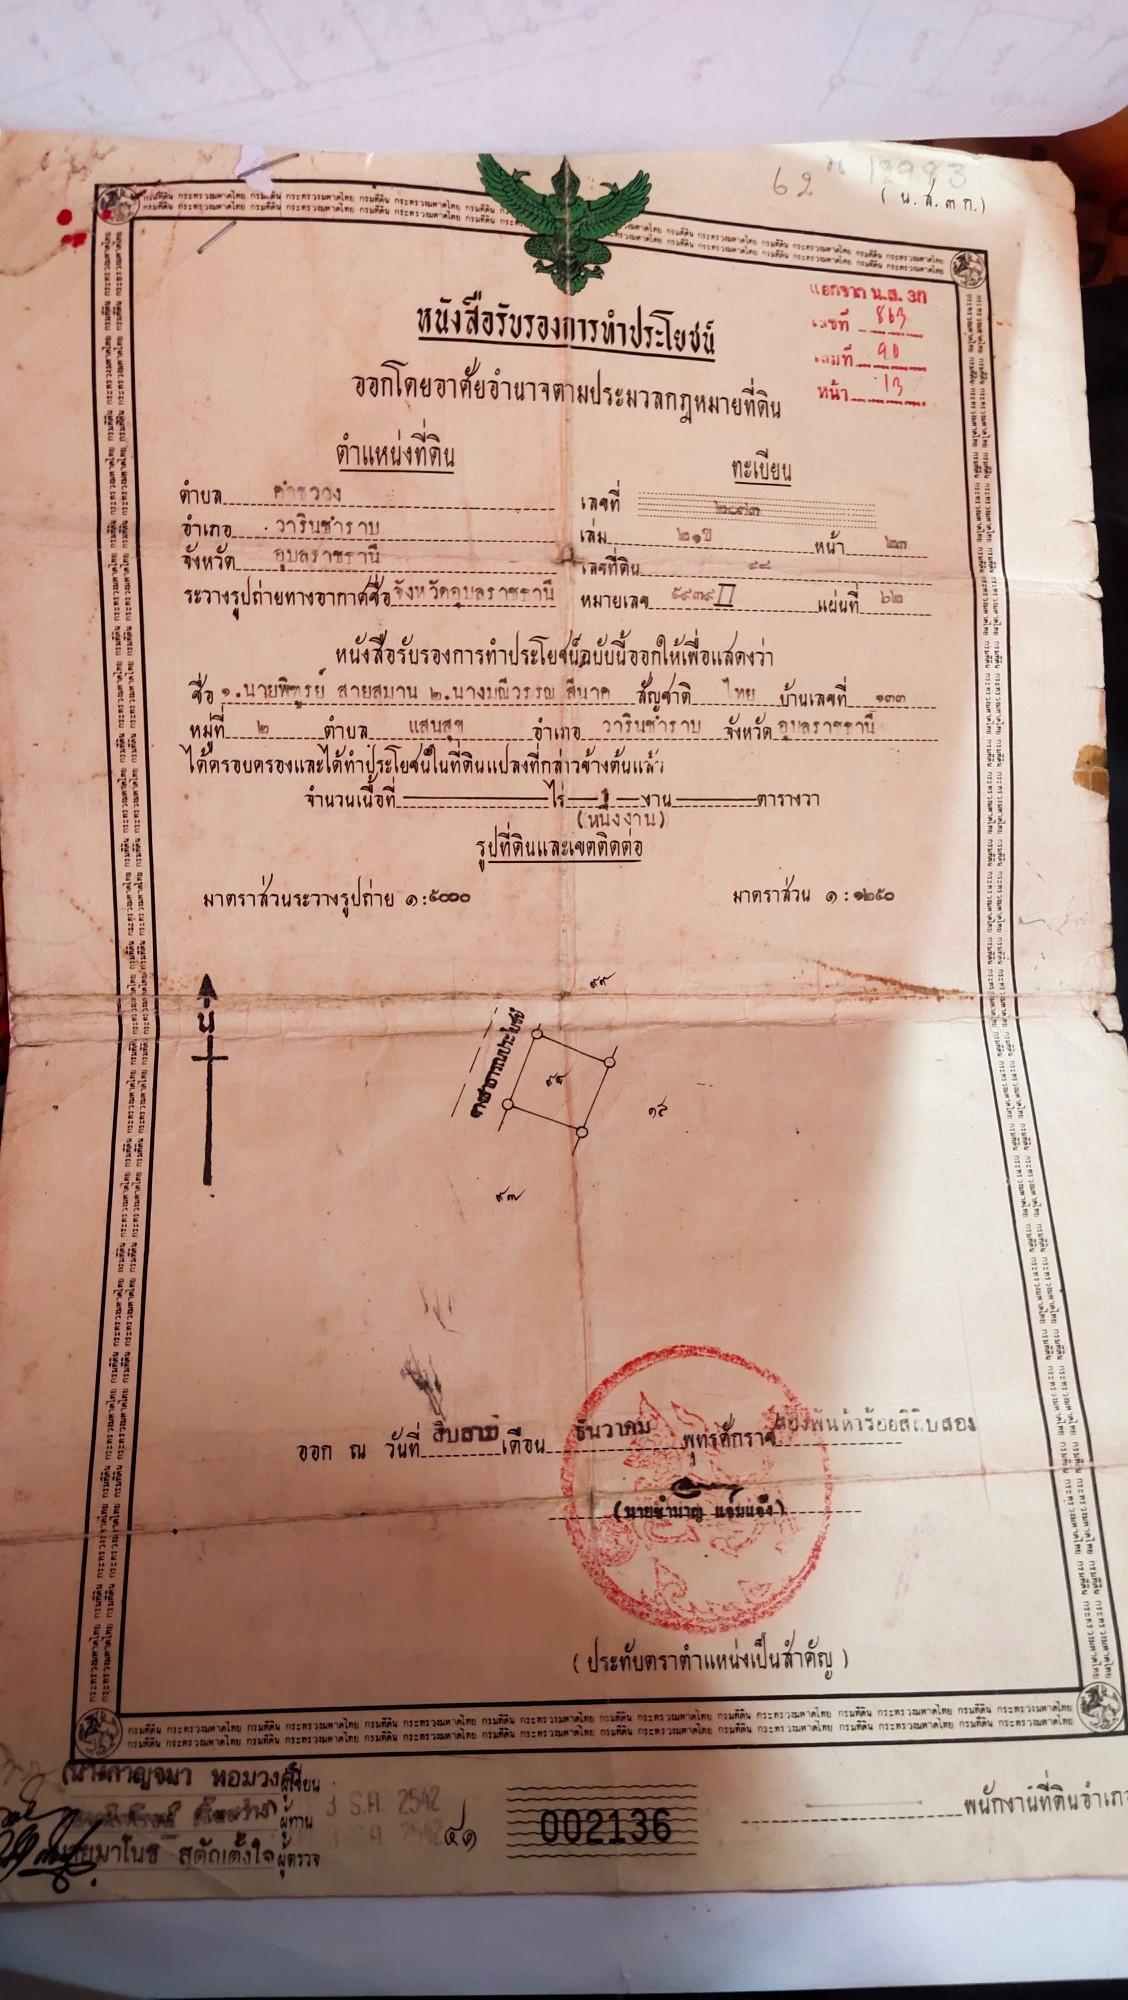 62
( น.ส.๓ ก.)
แยกจาก น.ส. 3ก
เลขที่ 863
เล่มที่ 90
หน้า 13
หนังสือรับรองการทำประโยชน์
ออกโดยอาศัยอำนาจตามประมวลกฎหมายที่ดิน
ตำแหน่งที่ดิน
ทะเบียน
ตำบล คำขวาง
เลขที่
อำเภอ วารินชำราบ
เล่ม ๒๑ป หน้า ๒๓
จังหวัด อุบลราชธานี
เลขที่ดิน ๙๘
ระวางรูปถ่ายทางอากาศชื่อ จังหวัดอุบลราชธานี หมายเลข ๕๙๓๙ II แผ่นที่ ๖๒
หนังสือรับรองการทำประโยชน์ฉบับนี้ออกให้เพื่อแสดงว่า
ชื่อ ๑.นายพิฑูรย์ สายสมาน ๒.นางมณีวรรณ สีนาค สัญชาติ ไทย บ้านเลขที่ ๑๓๓
หมู่ที่ ๒ ตำบล แสนสุข อำเภอ วารินชำราบ จังหวัด อุบลราชธานี
ได้ครอบครองและได้ทำประโยชน์ในที่ดินแปลงที่กล่าวข้างต้นแล้ว
จำนวนเนื้อที่ ไร่ 1 งาน ตารางวา
(หนึ่งงาน)
รูปที่ดินและเขตติดต่อ
มาตราส่วนระวางรูปถ่าย ๑:๕๐๐๐
มาตราส่วน ๑:๑๒๕๐
น
๙๙
ทางสาธารณประโยชน์
๙๘
๑๕
๙๗
ออก ณ วันที่ สิบสาม เดือน ธันวาคม พุทธศักราช สองพันห้าร้อยสี่สิบสอง
(นายชำนาญ แจ่มแจ้ง)
(ประทับตราตำแหน่งเป็นสำคัญ)
(นางกาญจนา หอมวงศ์) ผู้เขียน
ผู้ทาน
3 ธ.ค. 2542
นายมาโนช สุตัญตั้งใจ ผู้ตรวจ
๔๑
002136
พนักงานที่ดินอำเภอ